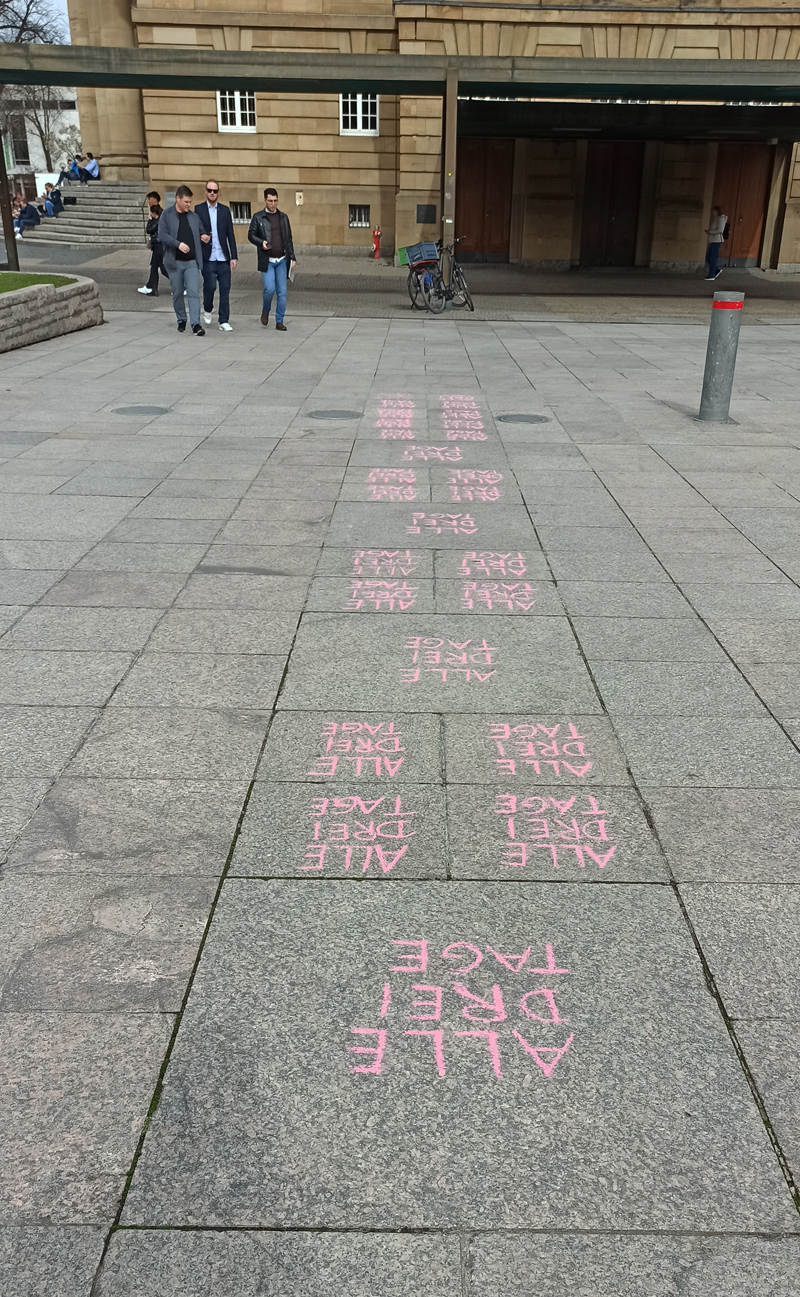 ALLE
DREI
TAGE
ALLE
DREI
TAGE
ALLE
DREI
TAGE
ALLE
DREI
TAGE
ALLE
DREI
TAGE
ALLE
DREI
TAGE
ALLE
DREI
TAGE
ALLE
DREI
TAGE
ALLE
DREI
TAGE
ALLE
DREI
TAGE
ALLE
DREI
TAGE